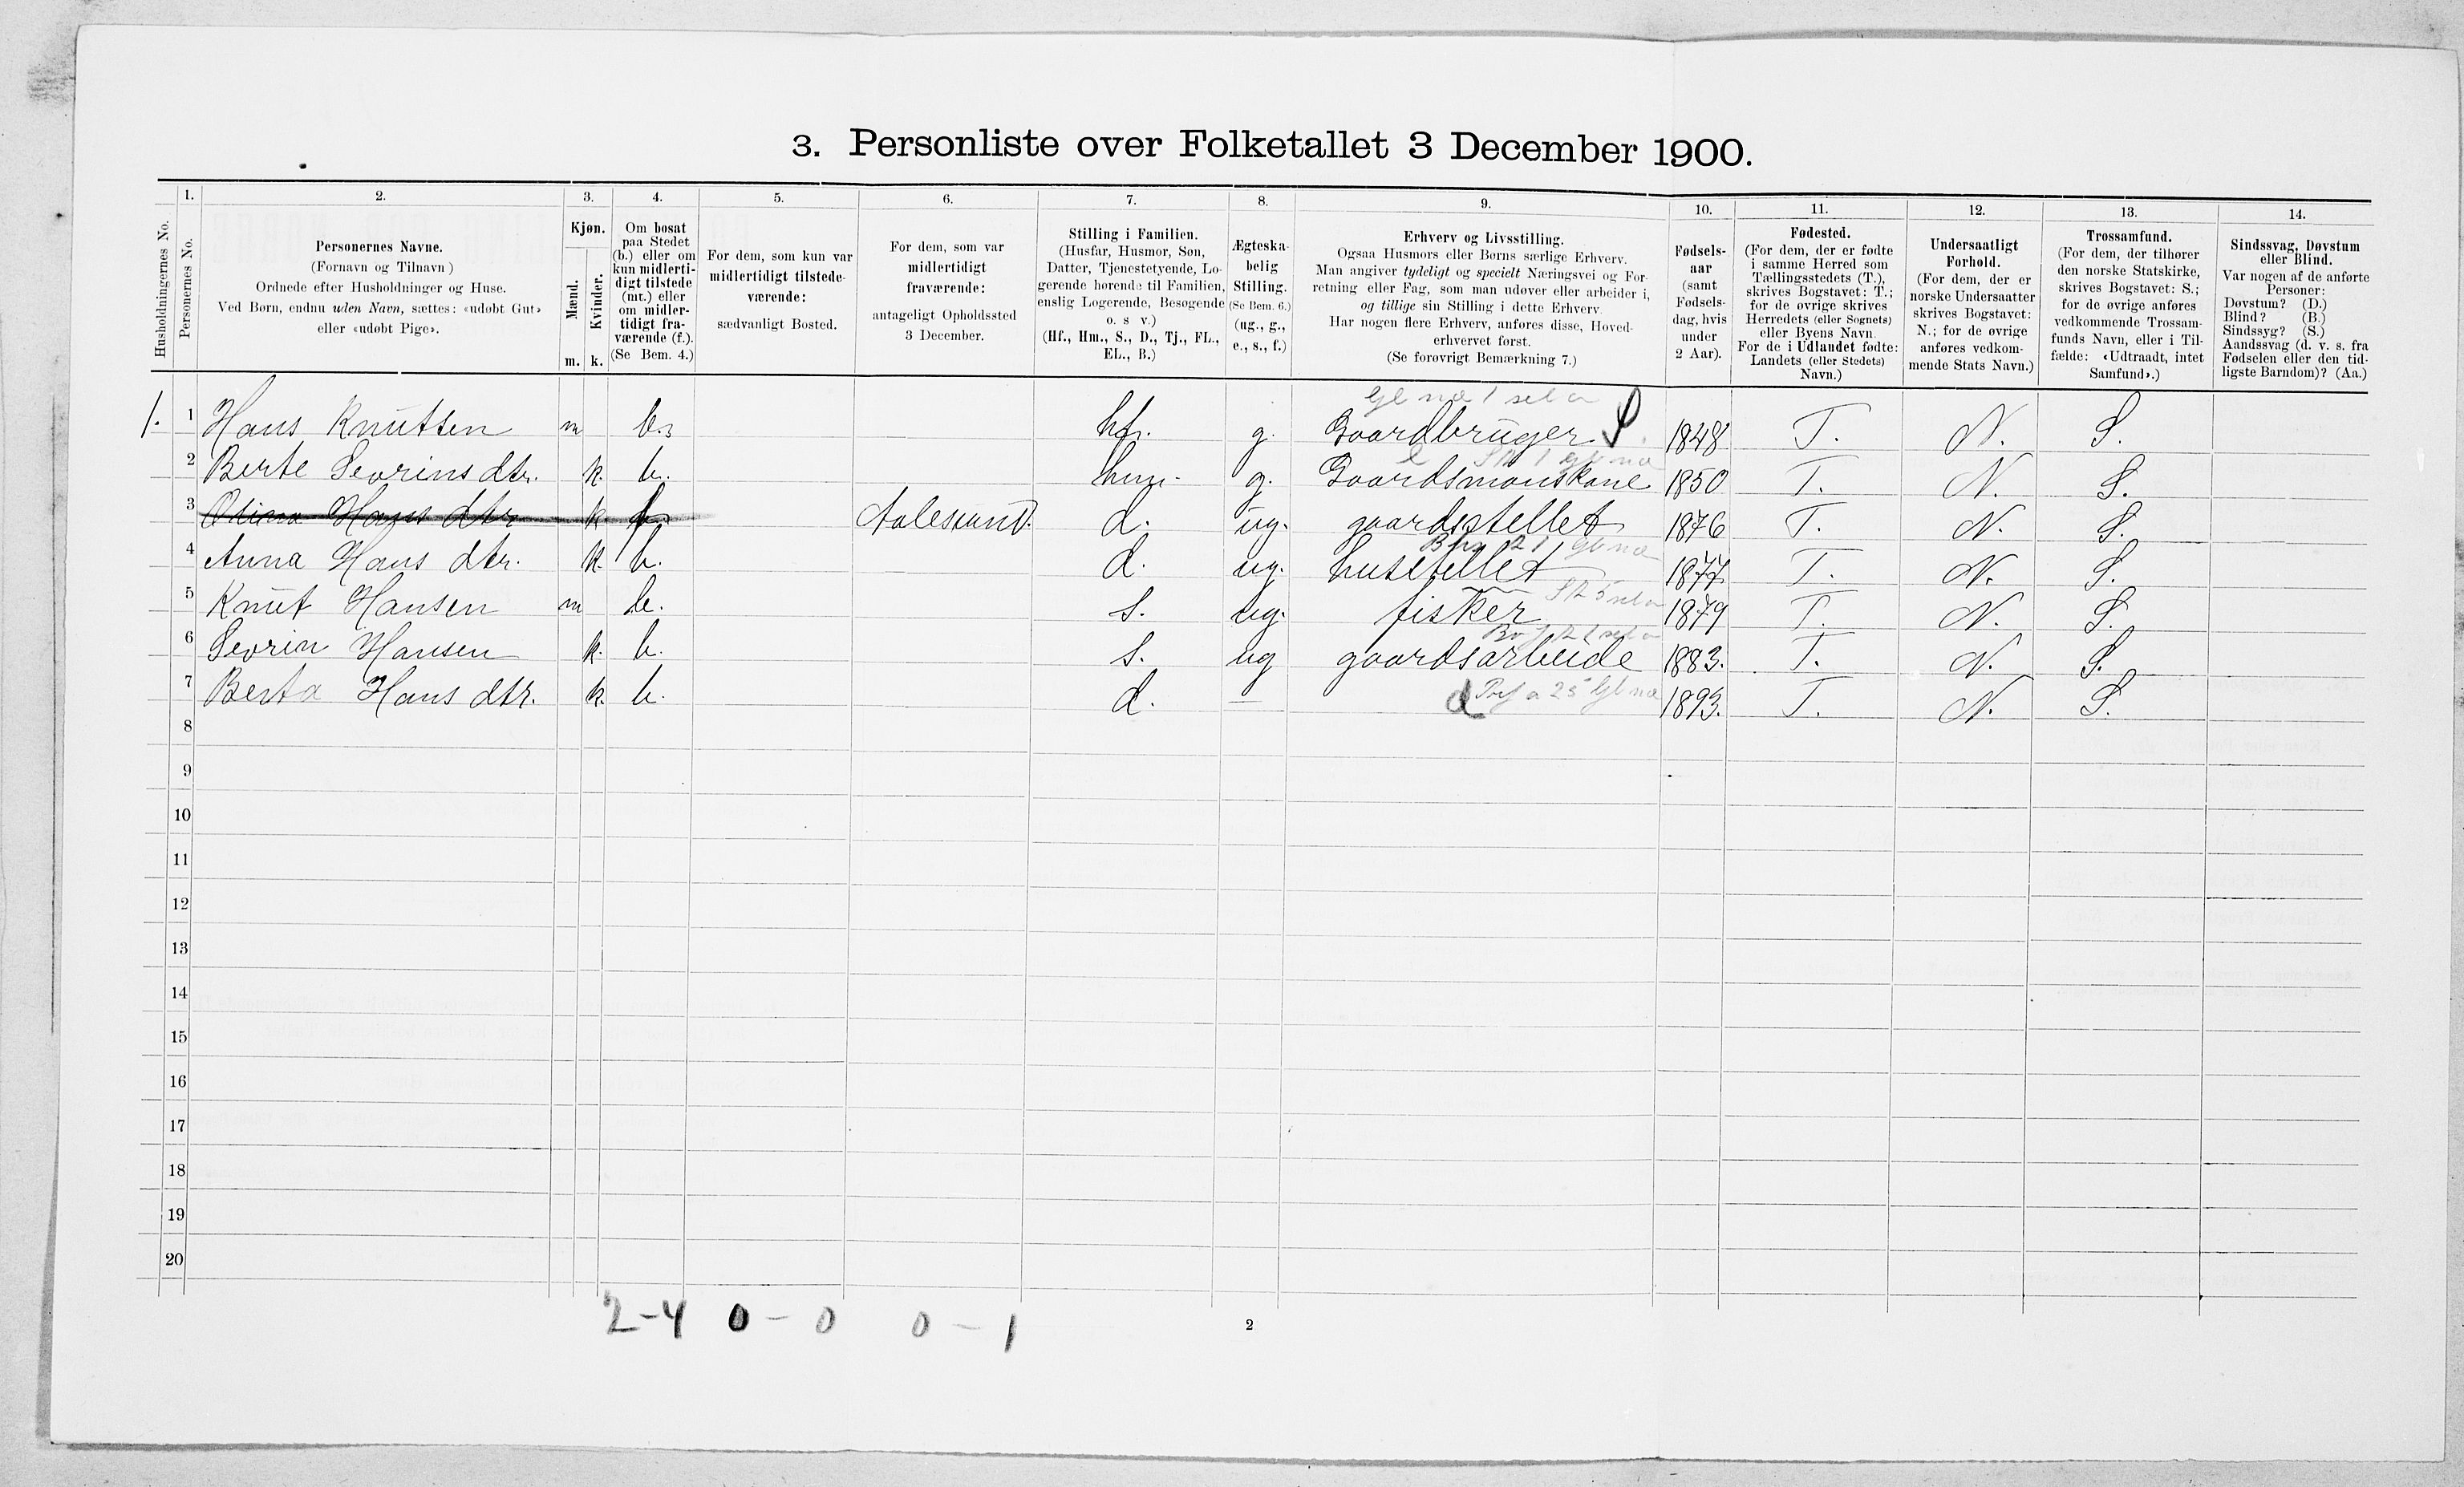 3. Personliste over Folketallet 3 December 1900.
1. 2. 3. 4. 5. 6. 7. 8. 9. 10. 11. 12. 13. 14.
Husholdningernes No.
Personernes No.
Personernes Navne.
(Fornavn og Tilnavn)
Ordnede efter Husholdninger og Huse.
Ved Børn, endnu uden Navn, sættes: «udøbt Gut»
eller «udøbt Pige».
Kjøn.
Mænd.
Kvinder.
m. k.
Om bosat
paa Stedet
(b.) eller om
kun midlerti-
digt tilstede
(mt.) eller
om midler-
tidigt fra-
værende (f.).
(Se Bem. 4.)
For dem, som kun var
midlertidigt tilstede-
værende:
sædvanligt Bosted.
For dem, som var
midlertidigt
fraværende:
antageligt Opholdssted
3 December.
Stilling i Familien.
(Husfar, Husmor, Søn,
Datter, Tjenestetyende, Lo-
gerende hørende til Familien,
enslig Logerende, Besøgende
o. s v.)
(Hf., Hm., S., D., Tj., FL.,
EL., B.)
Ægteska-
belig
Stilling.
(Se Bem. 6.)
(ug., g.,
e., s., f.)
Erhverv og Livsstilling.
Ogsaa Husmors eller Børns særlige Erhverv.
Man angiver tydeligt og specielt Næringsvei og For-
retning eller Fag, som man udøver eller arbeider i,
og tillige sin Stilling i dette Erhverv.
Har nogen flere Erhverv, anføres disse, Hoved-
erhvervet først.
(Se forøvrigt Bemærkning 7.)
Fødsels-
aar
(samt
Fødsels-
dag, hvis
under
2 Aar).
Fødested.
(For dem, der er fødte
i samme Herred som
Tællingsstedets (T.),
skrives Bogstavet: T.;
for de øvrige skrives
Herredets (eller Sognets)
eller Byens Navn
For de i Udlandet fødte:
Landets (eller Stedets)
Navn.)
Undersaatligt
Forhold.
(For dem, der er
norske Undersaatter
skrives Bogstavet:
N.; for de øvrige
anføres vedkom-
mende Stats Navn.)
Trossamfund.
(For dem, der tilhører
den norske Statskirke,
skrives Bogstavet: S.;
for de øvrige anføres
vedkommende Trossam-
funds Navn, eller i Til-
fælde: «Udtraadt, intet
Samfund».)
Sindssvag, Døvstum
eller Blind.
Var nogen af de anførte
Personer:
Døvstum? (D.)
Blind? (B.)
Sindssyg? (S.)
Aandssvag (d. v. s. fra
Fødselen eller den tid-
ligste Barndom)? (Aa.)
1. 1 Hans Knutsen m b. hf. g. Gaardbruger S 1848 T. N. S.
2 Berte Sevrinsdtr. k. b. hm. g. Gaardsmanskone 1850 T. N. S.
3 Olina Hans dtr k Aalesund. d. ug. gaardsstellet 1876 T. N. S.
4 Anna Hans dtr. k. b. d. ug. husstellet 1877 T. N. S.
5 Knut Hansen m b. s. ug. fisker 1879 T. N. S.
6 Sevrin Hansen k. b. s. ug gaardsarbeide 1883. T. N. S.
7 Berta Hans dtr. k. b. d. — d 1893. T. N. S.
8
9
10
11
12
13
14
15
16
17
18
19
20
2-4 0-0 0-1
2